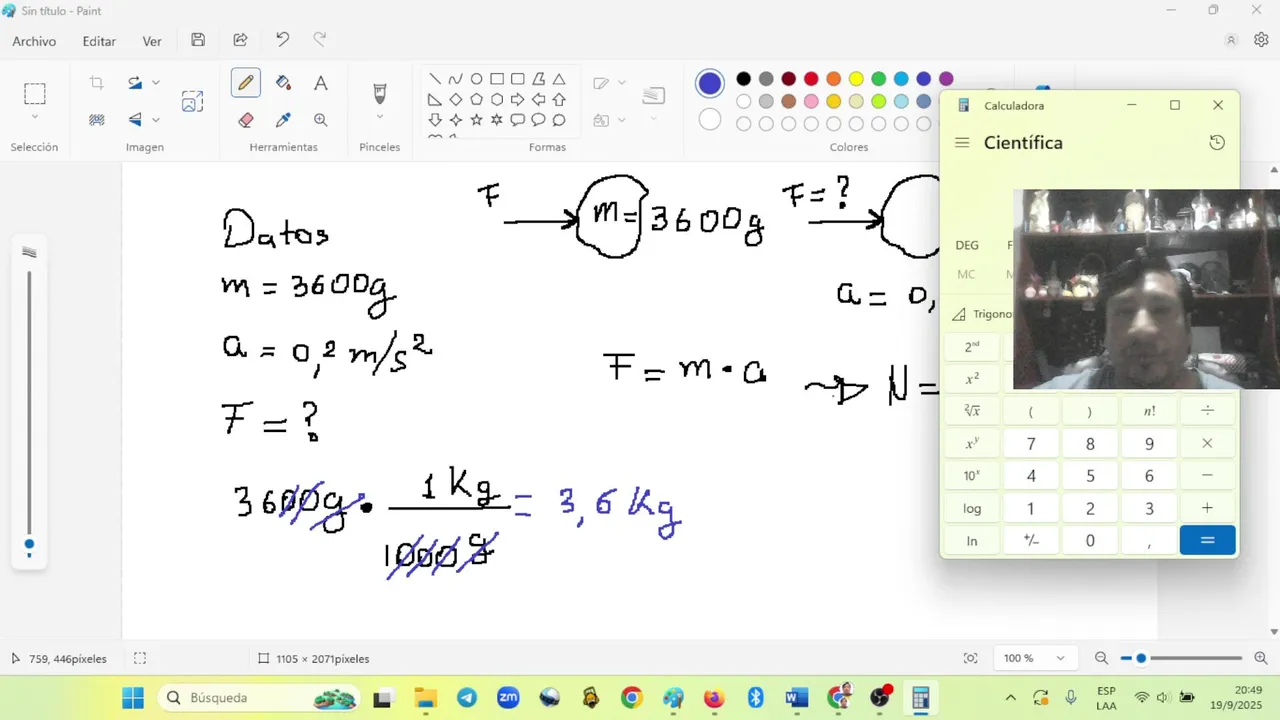 Sin título - Paint
Archivo Editar Ver
Selección Imagen Herramientas Pinceles Formas Colores
Calculadora
Científica
DEG F
MC M
Trigono
2nd
x²
²√x ( ) n! ÷
xʸ 7 8 9 ×
10ˣ 4 5 6 −
log 1 2 3 +
ln +/− 0 , =
F m = 3600g F = ?
Datos
m = 3600g
a = 0,
a = 0,2 m/s²
F = m · a N =
F = ?
3600g · 1 Kg = 3,6 Kg
1000 g
759, 446píxeles 1105 × 2071píxeles 100 %
Búsqueda
zm
ESP
LAA
20:49
19/9/2025